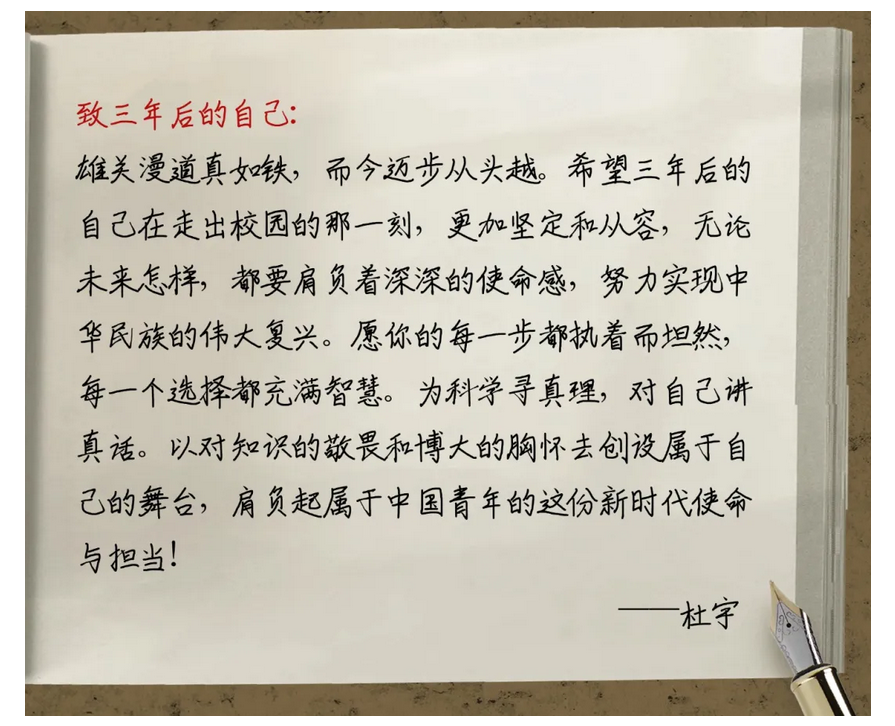 致三年后的自己：
雄关漫道真如铁，而今迈步从头越。希望三年后的
自己在走出校园的那一刻，更加坚定和从容，无论
未来怎样，都要肩负着深深的使命感，努力实现中
华民族的伟大复兴。愿你的每一步都执着而坦然，
每一个选择都充满智慧。为科学寻真理，对自己讲
真话。以对知识的敬畏和博大的胸怀去创设属于自
己的舞台，肩负起属于中国青年的这份新时代使命
与担当！
——杜宇